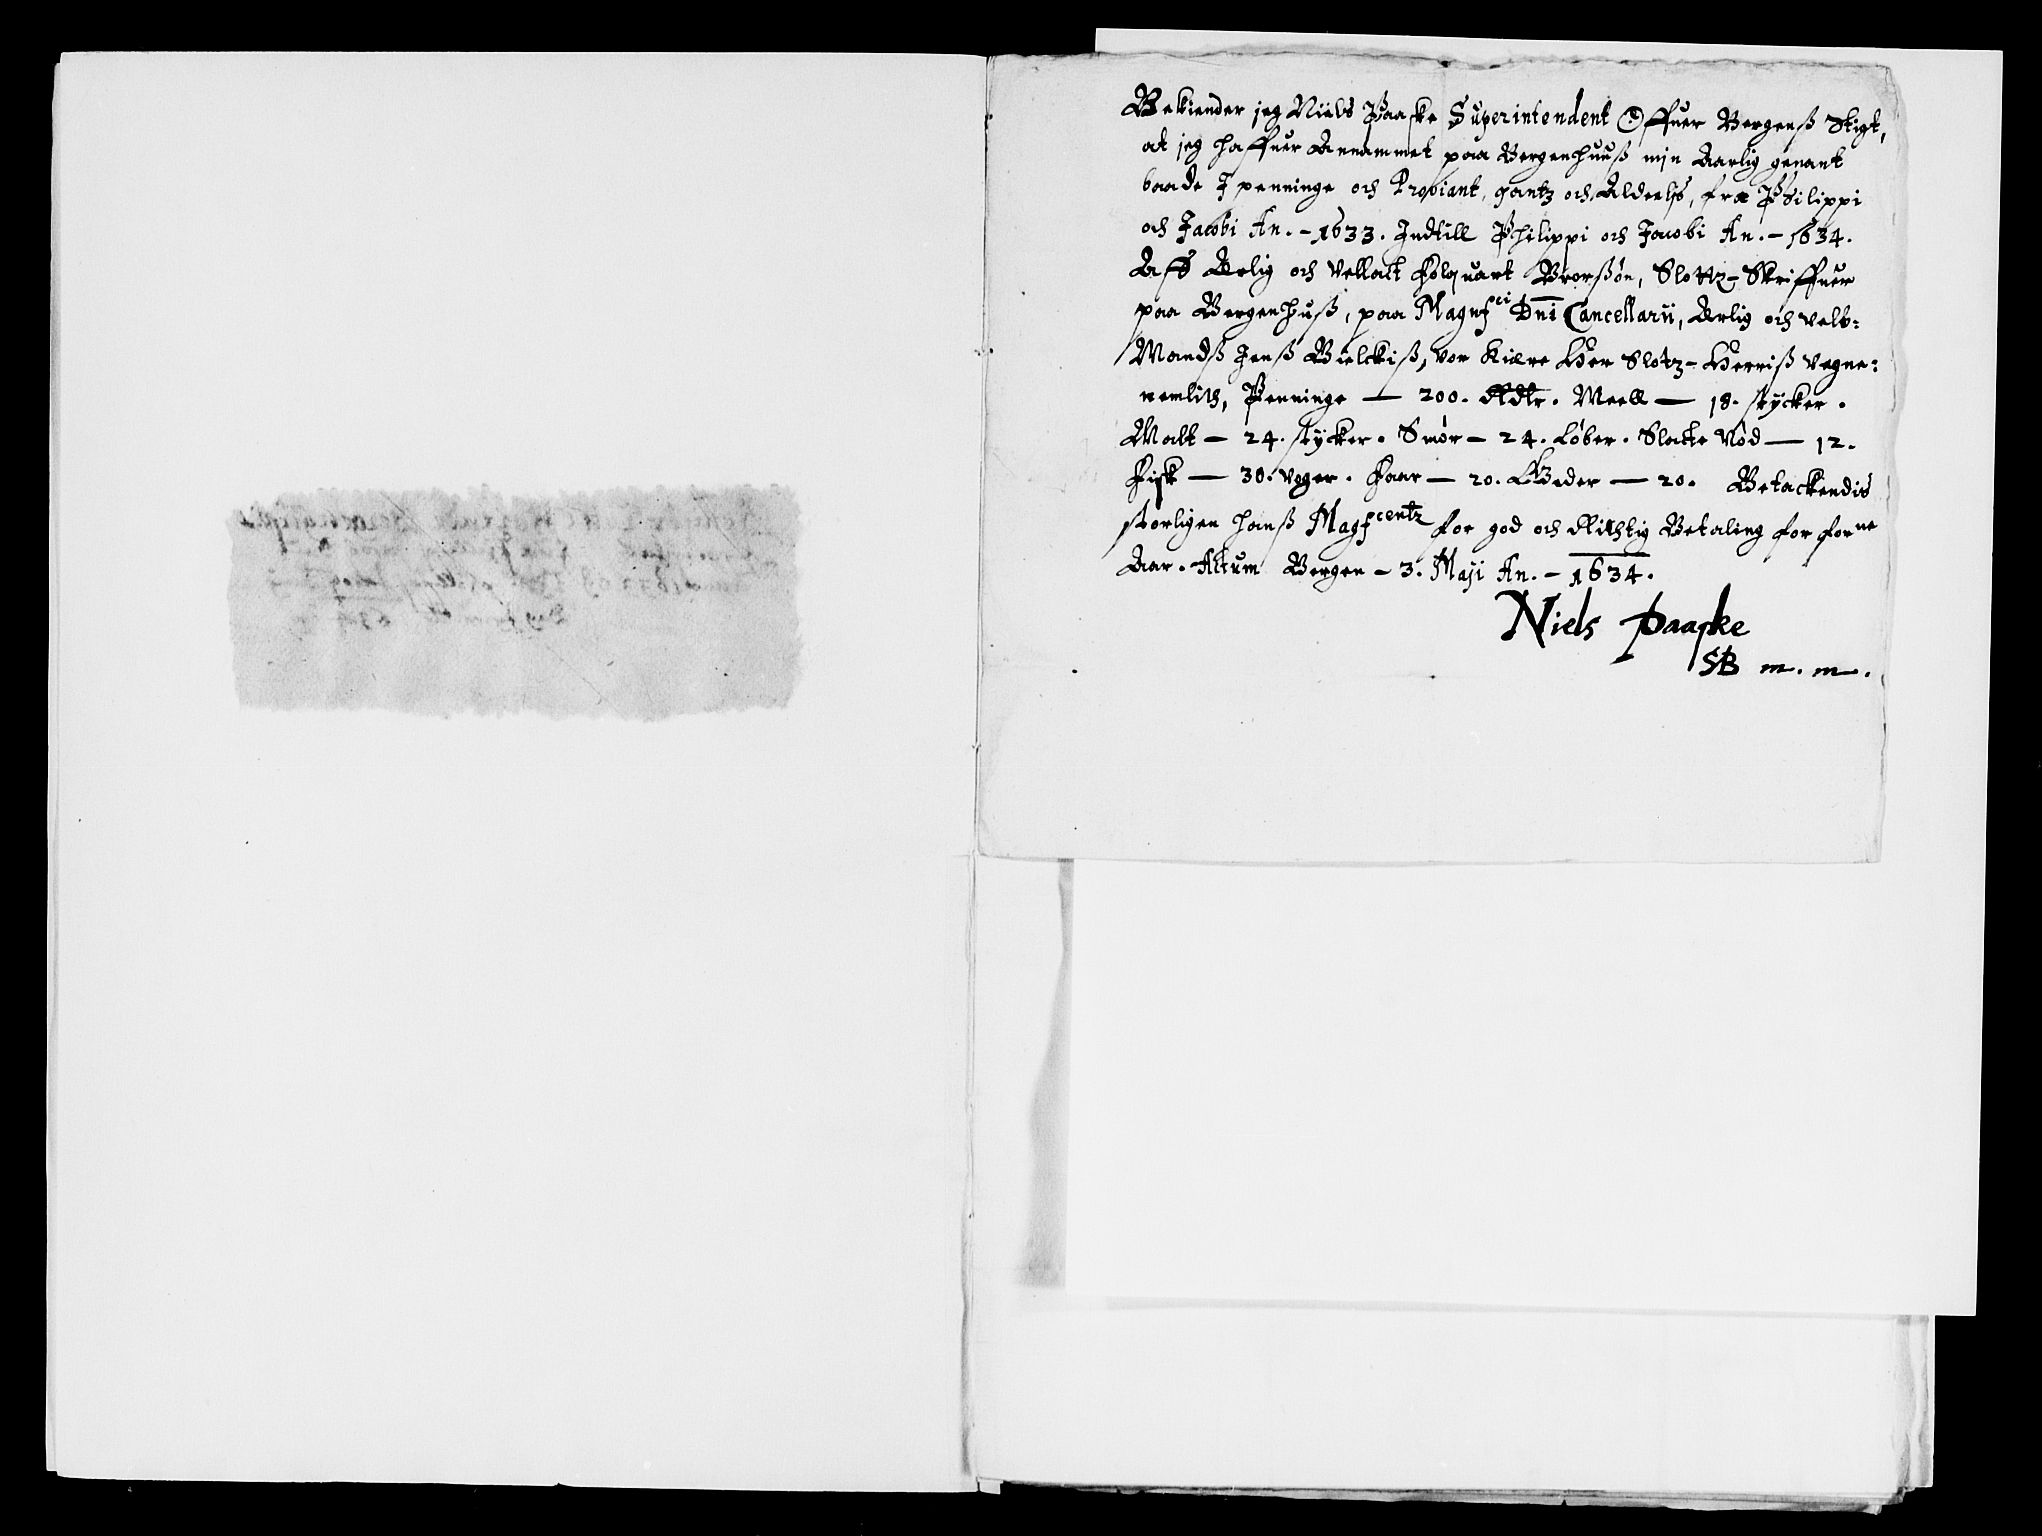 Bekiender jeg Niels Paaske Superintendent Offuer Bergenß Stigt,
at jeg haffuer Annammet paa Bergenhuuß mjn Aarlig genant
baade J penninge och Proviant, gantz och Aldeelß, fra Philippi
och Jacobi An. - 1633. Indtill Philippi och Jacobi An. - 1634.
Aff Ærlig och Vellact Folquart Brorßøn, Slottz-Skriffuer
paa Bergenhuß, paa Magnf^ci Dni Cancellarii, Ærlig och velb:
Mandß Jenß Bielckiß, vor Kiære Her Slotz-Herriß vegne:
nemlich, Penninge — 200. Rdlr. Meell — 18. stycker.
Malt — 24. stycker. Smør — 24. Løber. Slacte Nød — 12.
Fisk — 30. voger. Faar — 20. Beder — 20. Betackendis
storligen hanß Magf^centz for god och Richtig Betaling for for^ne
Aar. Actum Bergen - 3. Maji An. - 1634.
Niels Paaske
SB m. m.